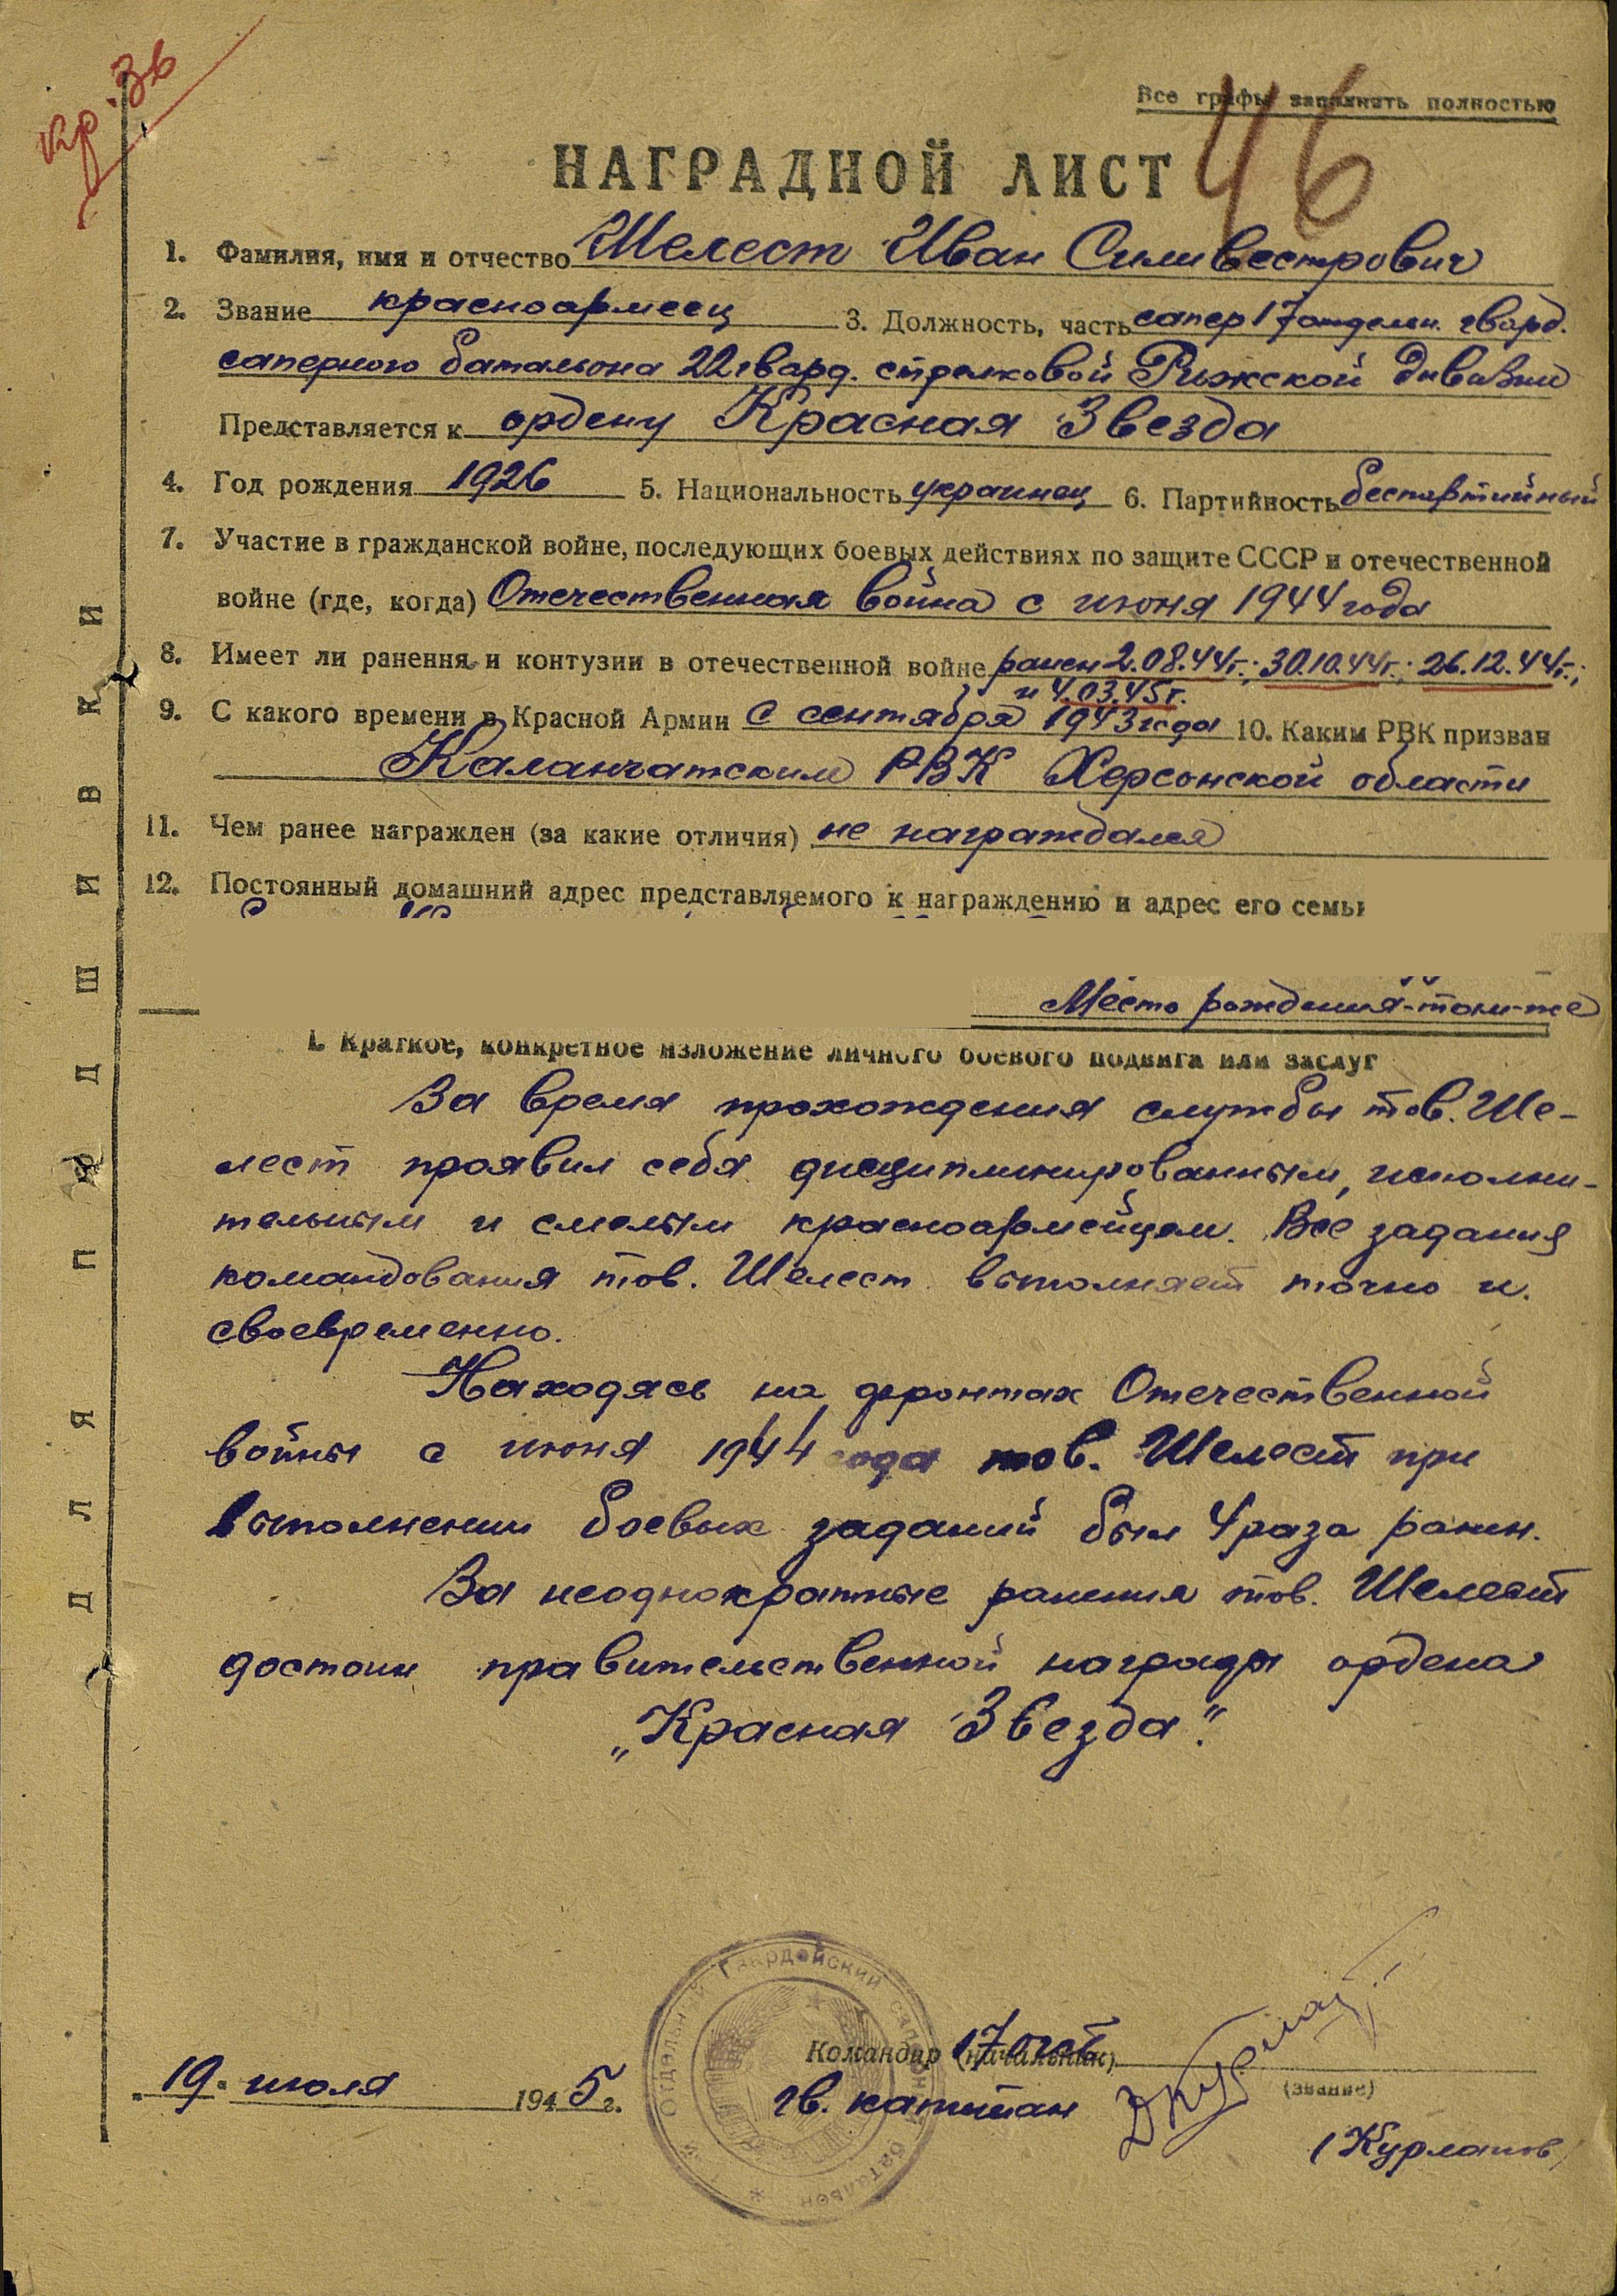 Кр. Зв
46
Все графы заполнять полностью
НАГРАДНОЙ ЛИСТ
1. Фамилия, имя и отчество Шелест Иван Силивестрович
2. Звание красноармеец 3. Должность, часть сапер 17 отдельн. гвард.
саперного батальона 22 гвард. стрелковой Рижской дивизии
Представляется к ордену Красная Звезда
4. Год рождения 1926 5. Национальность украинец 6. Партийность беспартийный
7. Участие в гражданской войне, последующих боевых действиях по защите СССР и отечественной
войне (где, когда) Отечественная война с июня 1944 года
8. Имеет ли ранения и контузии в отечественной войне ранен 2.08.44г.; 30.10.44г.; 26.12.44г.;
и 4.03.45г.
9. С какого времени в Красной Армии с сентября 1943 года 10. Каким РВК призван
Каланчатским РВК Херсонской области
11. Чем ранее награжден (за какие отличия) не награждался
12. Постоянный домашний адрес представляемого к награждению и адрес его семьи
Место рождения-там-же
I. Краткое, конкретное изложение личного боевого подвига или заслуг
За время прохождения службы тов. Ше-
лест проявил себя дисциплинированным, исполни-
тельным и смелым красноармейцем. Все задания
командования тов. Шелест выполняет точно и
своевременно.
Находясь на фронтах Отечественной
войны с июня 1944 года тов. Шелест при
выполнении боевых заданий был 4 раза ранен.
За неоднократные ранения тов. Шелест
достоин правительственной награды ордена
„Красная Звезда".
Отдельный Гвардейский саперный батальон
Командир (начальник) 17 огсб
(звание)
„19" июля 1945 г.
гв. капитан
(Курманов)
ДЛЯ ПОДШИВКИ